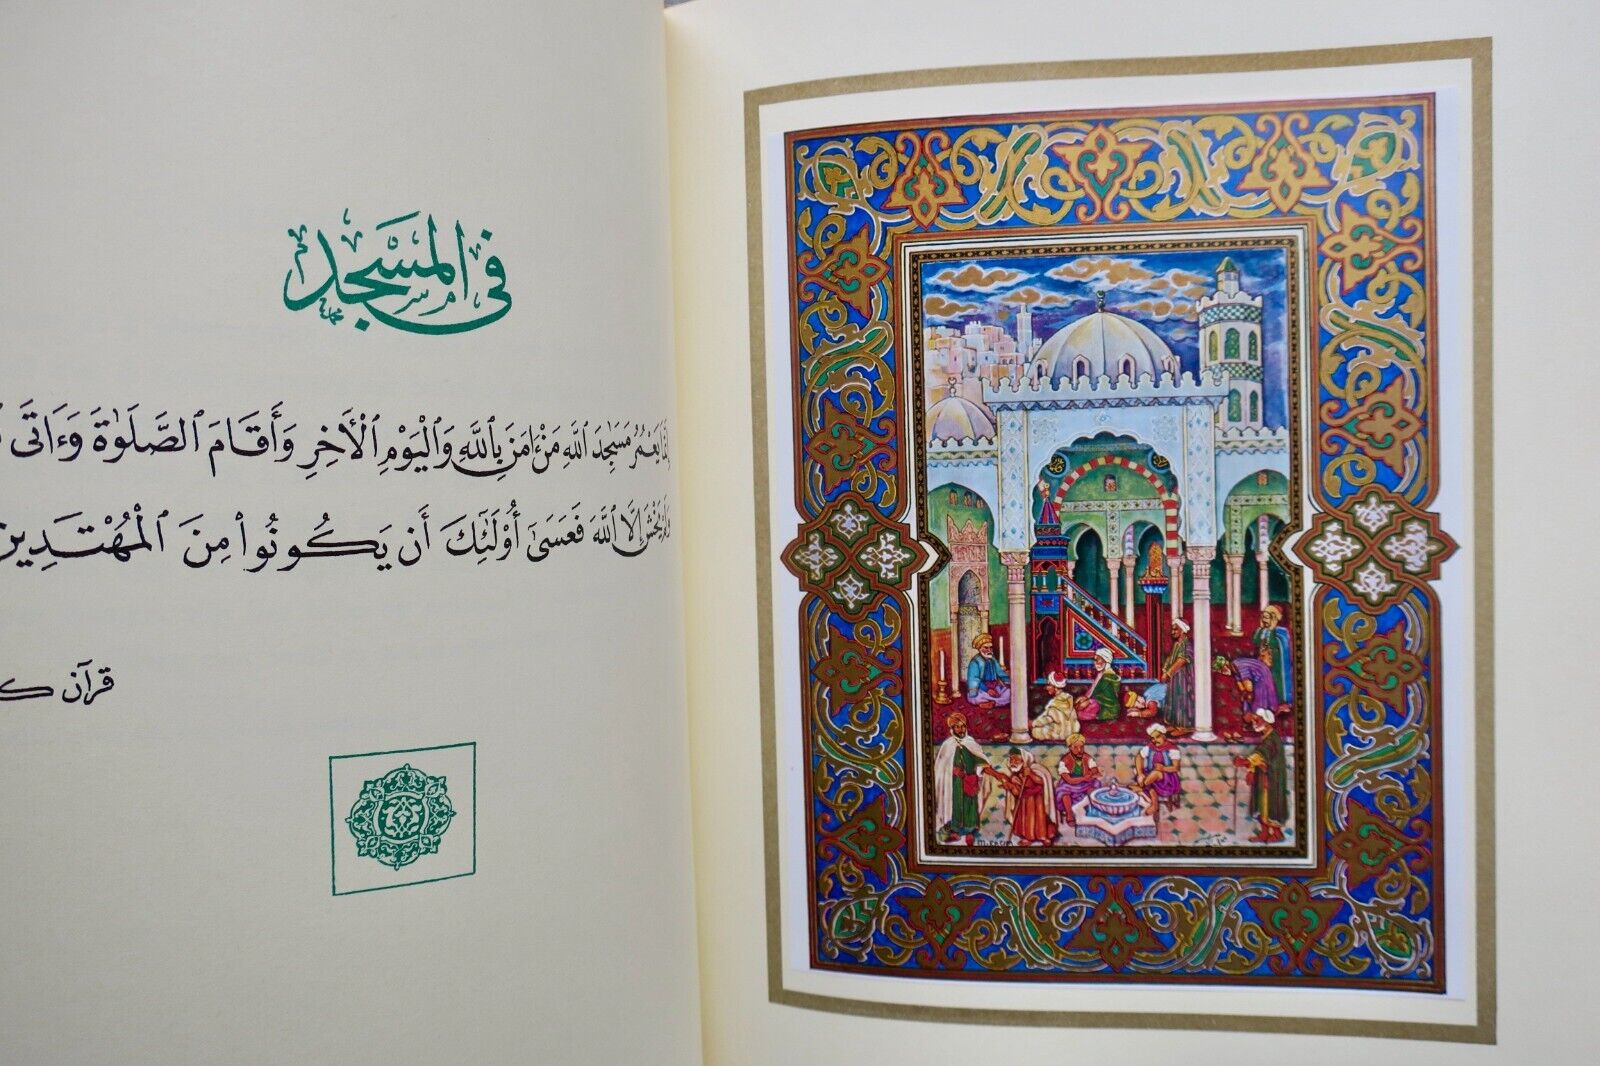 في المسجد
إِنَّمَا يَعْمُرُ مَسَٰجِدَ ٱللَّهِ مَنْ ءَامَنَ بِٱللَّهِ وَٱلْيَوْمِ ٱلْأَخِرِ وَأَقَامَ ٱلصَّلَوٰةَ وَءَاتَى
وَلَمْ يَخْشَ إِلَّا ٱللَّهَ فَعَسَىٰٓ أُوْلَٰٓئِكَ أَن يَكُونُواْ مِنَ ٱلْمُهْتَدِينَ
قرآن
M. RACIM